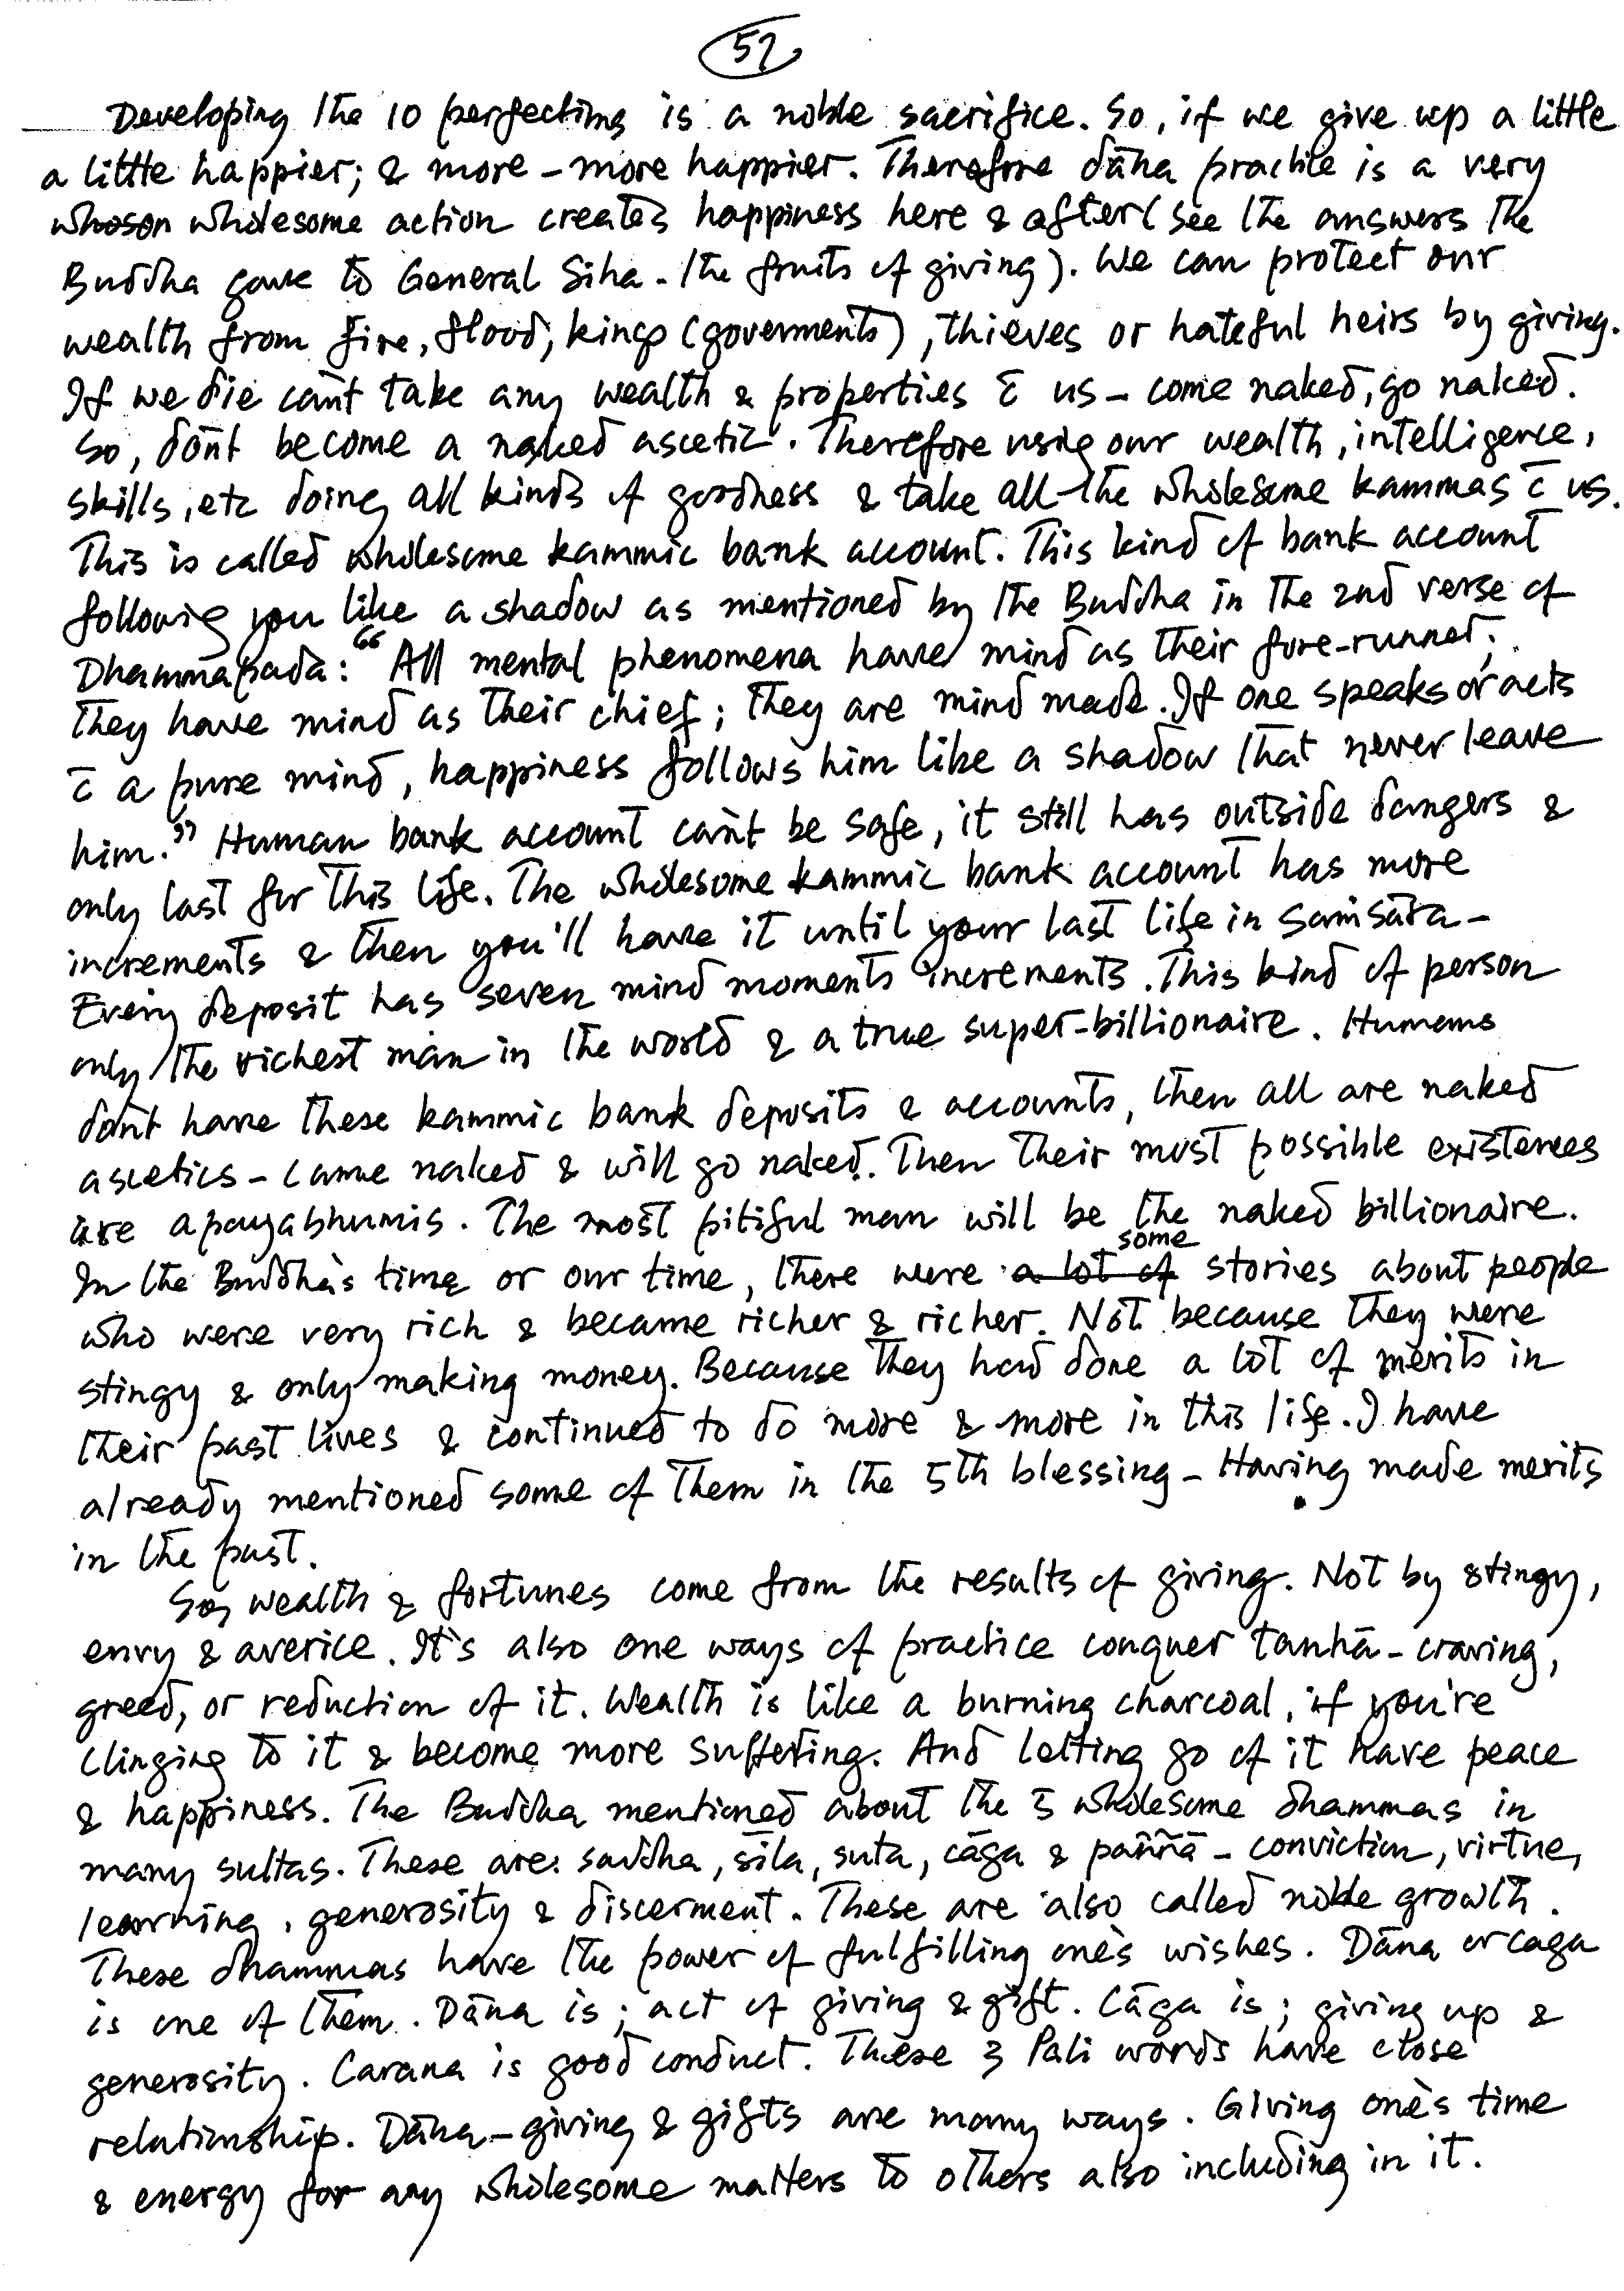 57
Developing the 10 perfections is a noble sacrifice. So, if we give up a little
a little happier; & more - more happier. Therefore dāna practice is a very
whoson wholesome action creates happiness here & after ( see the answers the
Buddha gave to General Siha - the fruits of giving ). We can protect our
wealth from fire, flood, kings (goverments), thieves or hateful heirs by giving.
If we die can't take any wealth & properties c̄ us - come naked, go naked.
So, don't become a naked ascetic. Therefore using our wealth, intelligence,
skills, etc doing all kinds of goodness & take all the wholesome kammas c̄ us.
This is called wholesome kammic bank account. This kind of bank account
following you like a shadow as mentioned by the Buddha in the 2nd verse of
Dhammapada: "All mental phenomena have mind as their fore-runner;
they have mind as their chief; they are mind made. If one speaks or acts
c̄ a pure mind, happiness follows him like a shadow that never leave
him." Human bank account can't be safe, it still has outside dangers &
only last for this life. The wholesome kammic bank account has more
increments & then you'll have it until your last life in saṁsāra -
Every deposit has seven mind moments increments. This kind of person
only the richest man in the world & a true super-billionaire. Humans
don't have these kammic bank deposits & accounts, then all are naked
ascetics - came naked & will go naked. Then their most possible existences
are apayabhumis. The most pitiful man will be the naked billionaire.
In the Buddha's time or our time, there were a lot of some stories about people
who were very rich & became richer & richer. Not because they were
stingy & only making money. Because they had done a lot of merits in
their past lives & continued to do more & more in this life. I have
already mentioned some of them in the 5th blessing - Having made merits
in the past.
So, wealth & fortunes come from the results of giving. Not by stingy,
envy & averice. It's also one ways of practice conquer tanhā - craving,
greed, or reduction of it. Wealth is like a burning charcoal, if you're
clinging to it & become more suffering. And letting go of it have peace
& happiness. The Buddha mentioned about the 5 wholesome dhammas in
many suttas. These are: saddha, sīla, suta, cāga & paññā - conviction, virtue,
learning, generosity & discerment. These are also called noble growth.
These dhammas have the power of fulfilling one's wishes. Dāna or caga
is one of them. Dāna is; act of giving & gift. Cāga is; giving up &
generosity. Carana is good conduct. These 3 Pali words have close
relationship. Dāna - giving & gifts are many ways. Giving one's time
& energy for any wholesome matters to others also including in it.